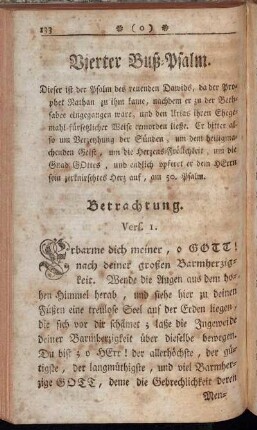 133 ❀ ( o ) ❀
Vierter Buß-Psalm.
Dieser ist der Psalm des reuenden Dawids, da der Pro-
phet Nathan zu ihm kame, nachdem er zu der Beth-
sabee eingegangen ware, und den Urias ihren Ehege-
mahl fürsetzlicher Weise ermorden liesse. Er bittet al-
so um Verzeyhung der Sünden, um den heiligma-
chenden Geist, um die Herzens-Frölichkeit, um die
Gnad GOttes, und endlich opferet er dem HErrn
sein zerknirschtes Herz auf, am 50. Psalm.
Betrachtung.
Vers. 1.
Erbarme dich meiner, o GOTT!
nach deiner großen Barmherzig-
keit. Wende die Augen aus dem ho-
hen Himmel herab, und siehe hier zu deinen
Füßen eine treulose Seel auf der Erden liegen,
die sich vor dir schämet; laße die Ingeweide
deiner Barmherzigkeit über dieselbe bewegen.
Du bist; o HErr! der allerhöchste, der gü-
tigste, der langmüthigste, und viel Barmher-
zige GOTT, deme die Gebrechlichkeit deren
Men-